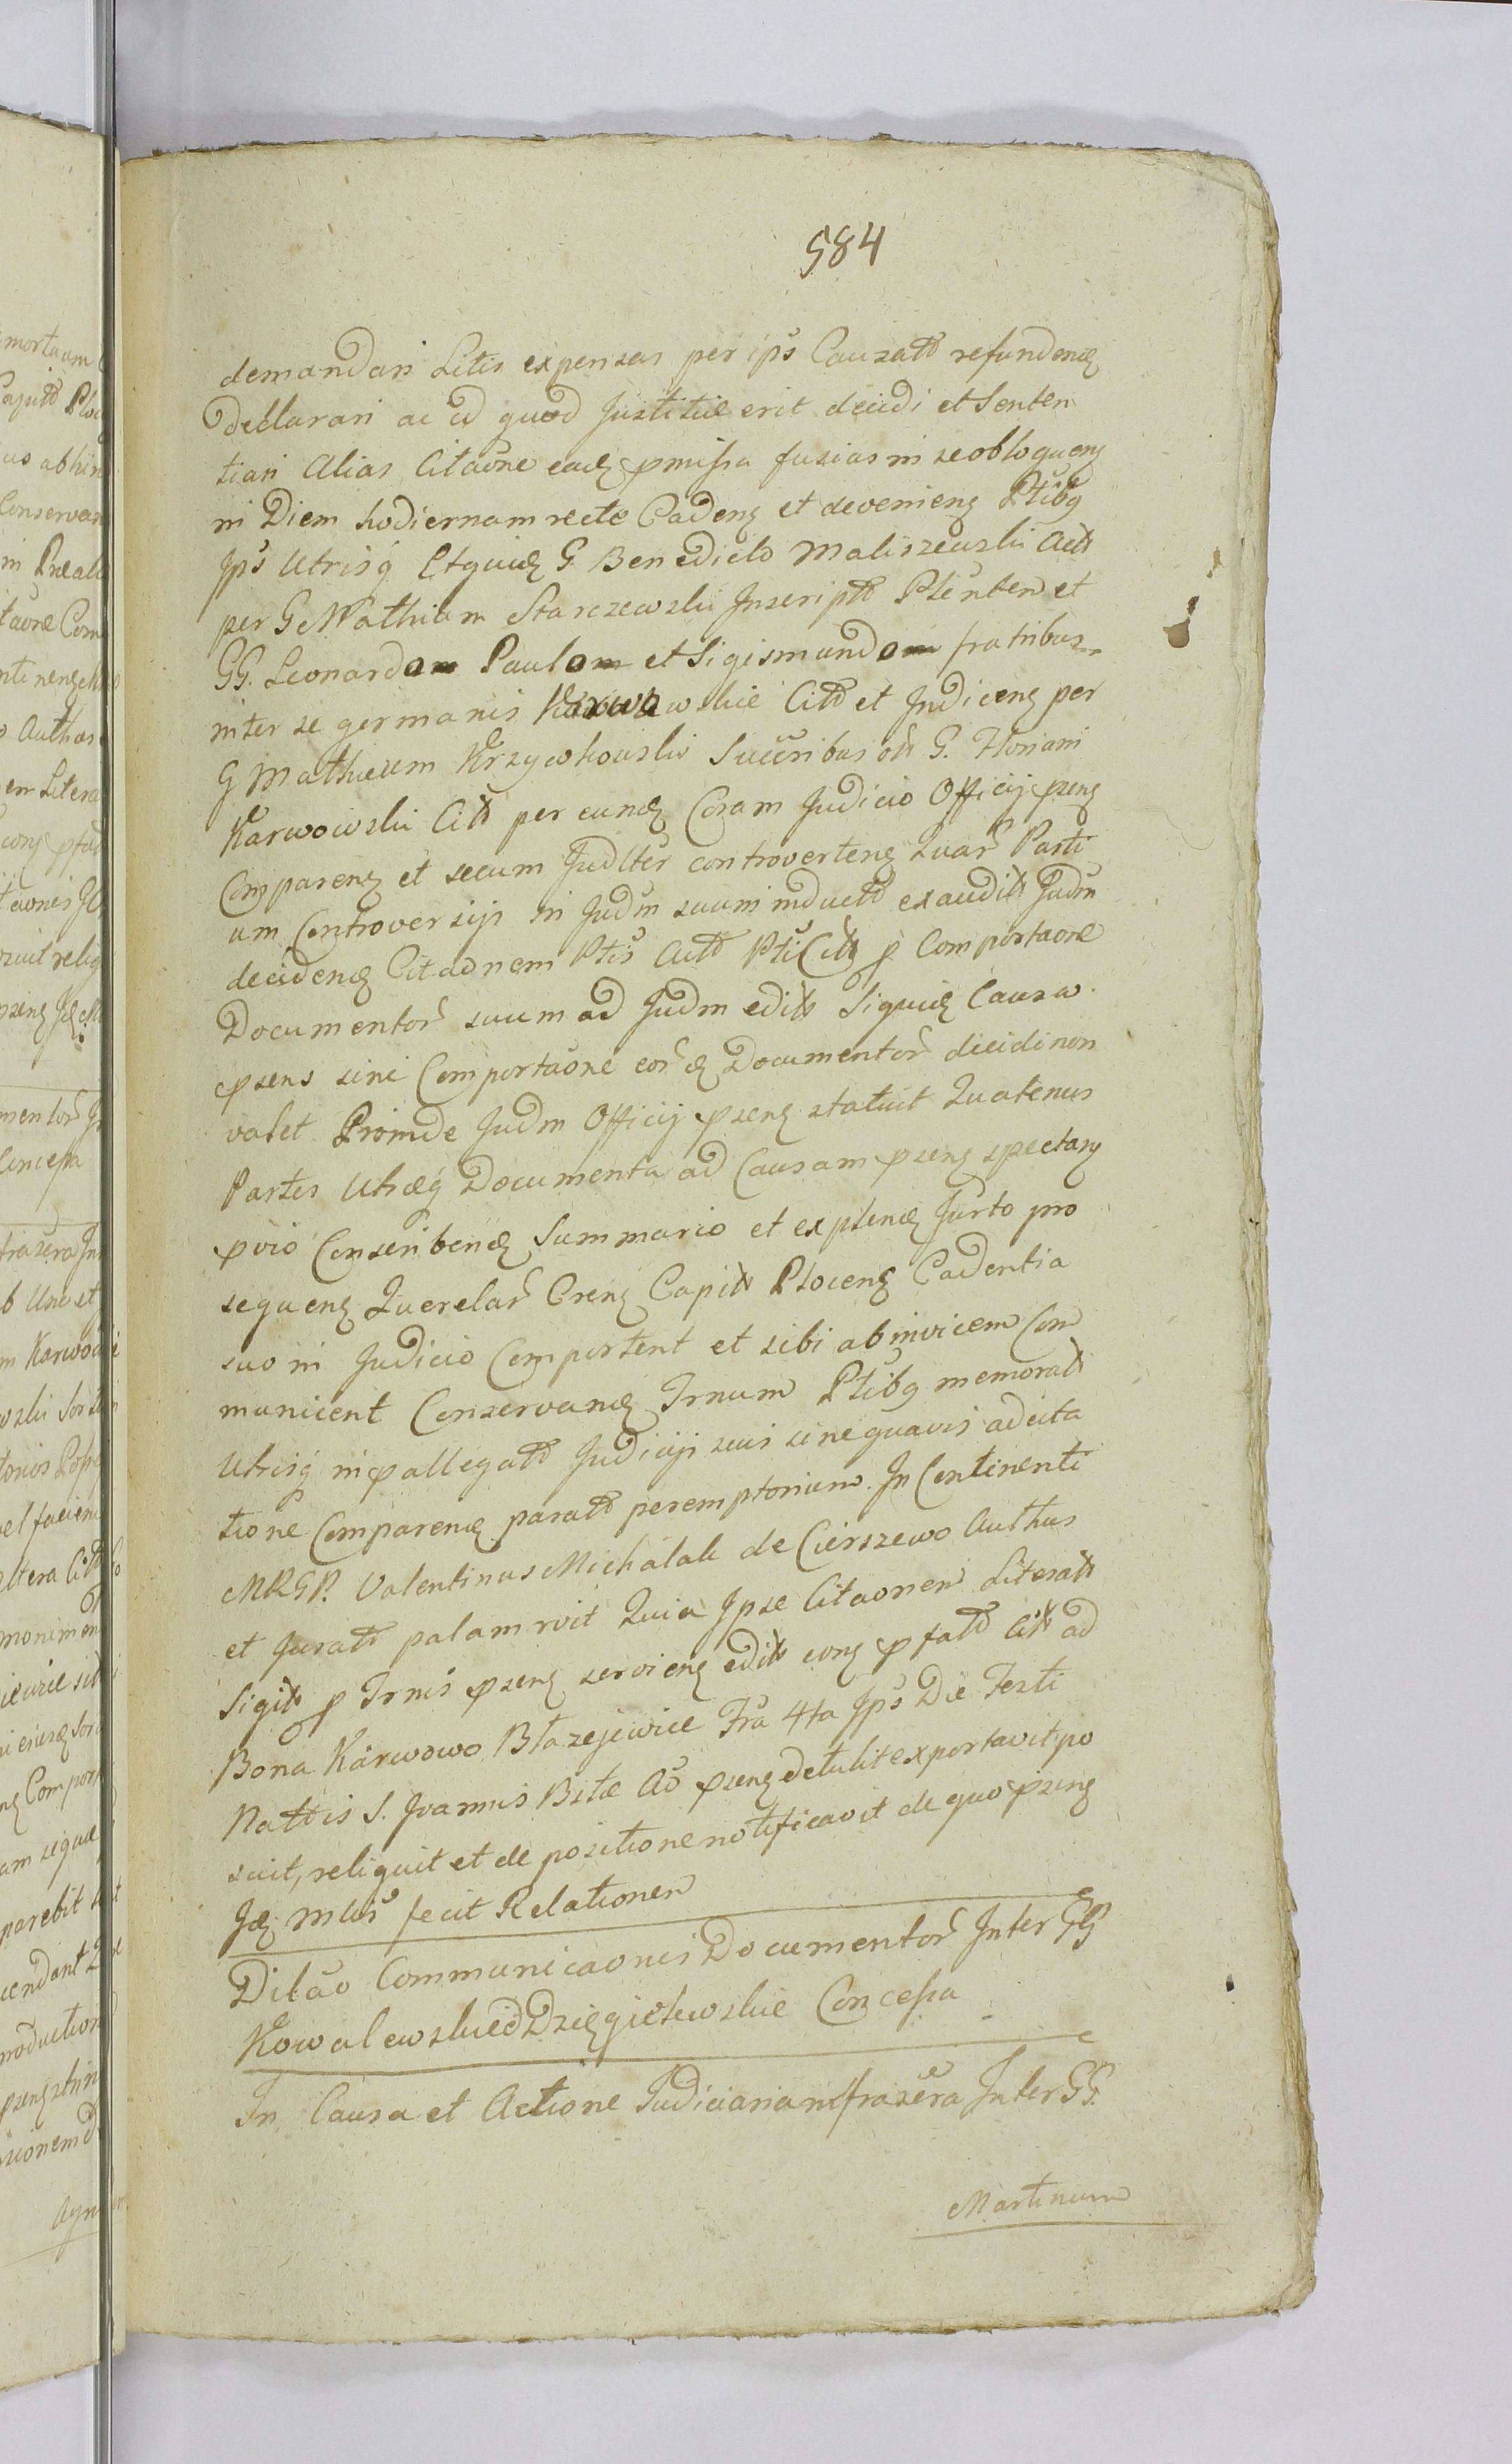 584
demandari Litis expensas per ips Causatt refundend
declarari ac id quod Justitiæ erit decidi et Senten
tiari Alias Citaone ead pmissa fusias in se obloquens
in Diem hodiernam recte Cadens et deveniens Ptibq
Jps Utrisq Etquid G. Benedicto Maliszewski Actt
per G Mathiam Starczewski Inscriptt Plenten et
GG. Leonardom Paulom et Sigismundom fratribus
inter se germanis Karwowskie Citt et Judicens per
G Mathæum Krzywkowski Succribus ott G. Floriani
Karwowski Citt per eund Coram Judicio Officij psens
Comparens et secum Judlter controvertens Quar Parti
um Controversijs in Judm suum inductt exauditt Judm
decidend Citaonem Ptis Actt Pti Citt p Comportaone
Documentor suum ad Judm editt Siquid Causa
psens sine Comportaone eor d Documentor decidi non
valet Proinde Judm Officij psens statuit Quatenus
Partes Utræq Documenta ad Causam psens spectan
pvio Conseribend Summario et explend Jurto pro
sequens Querelar Crens Capitt Plocens Cadentia
suo in Judicio Comportent et sibi ab invicem Com
municent Conservand Trnum Ptibq memoratt
Utrisq in pallegatt Judicijs seus sine quavis adcita
tione Comparend paratt peremptorium. In Continenti
MRGP. Valentinus Michalak de Cierszewo Authus
et Juratt palam rvit Quia Ipse Citaonem Literatt
Sigitt p Trnis psens serviens editt cons pfatt Citt ad
Bona Karwowo Błazejewice Fra 4ta Jps Die Festi
Nattis S. Joannis Bstæ Ao psens detulit exportavit po
suit, reliquit et de positione notificavit de quo psens
Jd Mlis fecit Relationem
Dilao Communicaonis Documentor Inter GG
Kowalewskie Dzięgielewskie Concessa
In Causa et Actione Judiciaria infrascra Inter GG.
Martinum